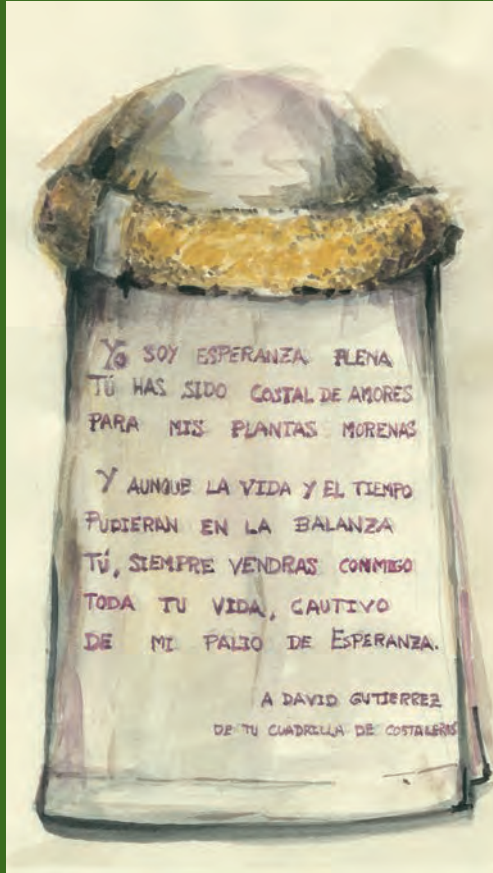 YO SOY ESPERANZA PLENA
TÚ HAS SIDO COSTAL DE AMORES
PARA MIS PLANTAS MORENAS
Y AUNQUE LA VIDA Y EL TIEMPO
PUDIERAN EN LA BALANZA
TÚ, SIEMPRE VENDRAS CONMIGO
TODA TU VIDA, CAUTIVO
DE MI PALIO DE ESPERANZA.
A DAVID GUTIERREZ
DE TU CUADRILLA DE COSTALEROS